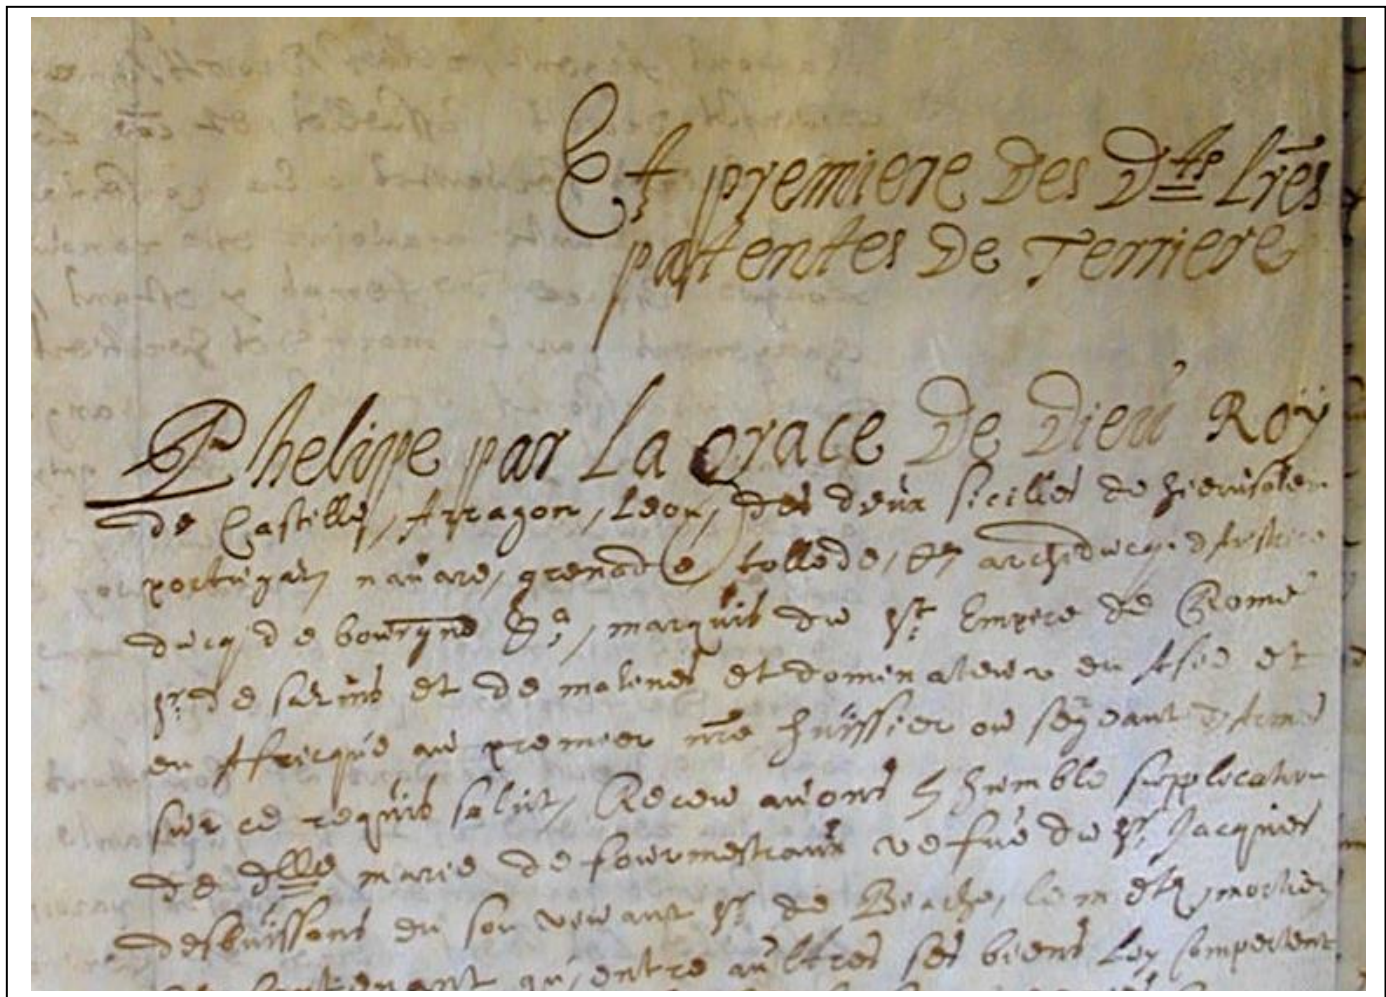 Et premiere des Dtes Lres
patentes de Terriere
Phelippe par La grace de Dieu Roÿ
de Castille, Arragon, Leon, des deux sicilles de hierusalem
portugal, navare, grenade, tollede, &a archiducq d'Austrice
ducq de bourgne &a, marquis du st Empire de Rome
sr de salins et de malines et dominateur en Asie et
en Affricque au premier nre huissier ou sergeant d'Armes
sur ce requis salut, Receu avons humble supplication
de delle marie de fourmestraux vefue du sr Jacques
desbuissons en son vivant sr de
contenant qu'entre aultres ses biens Luy Compectent